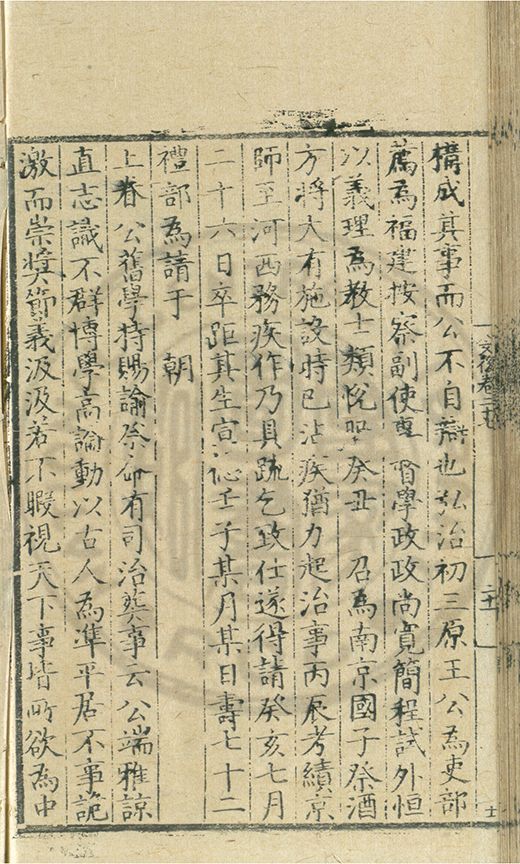 構成其事而公不自辯也弘治初三原王公為吏部
薦為福建按察副使專督學政政尚寬簡程試外恒
以義理為教士類悅服癸丑 召為南京國子祭酒
方將大有施設時已沾疾猶力起治事丙辰考績京
師至河西務疾作乃具疏乞致仕遂得請癸亥七月
二十六日卒距其生宣德壬子某月某日壽七十二
禮部為請于 朝
上眷公舊學特賜諭祭命有司治葬事云公端雅諒
直志識不群博學高論動以古人為準平居不事詭
激而崇獎節義汲汲若不暇視天下事皆所欲為中